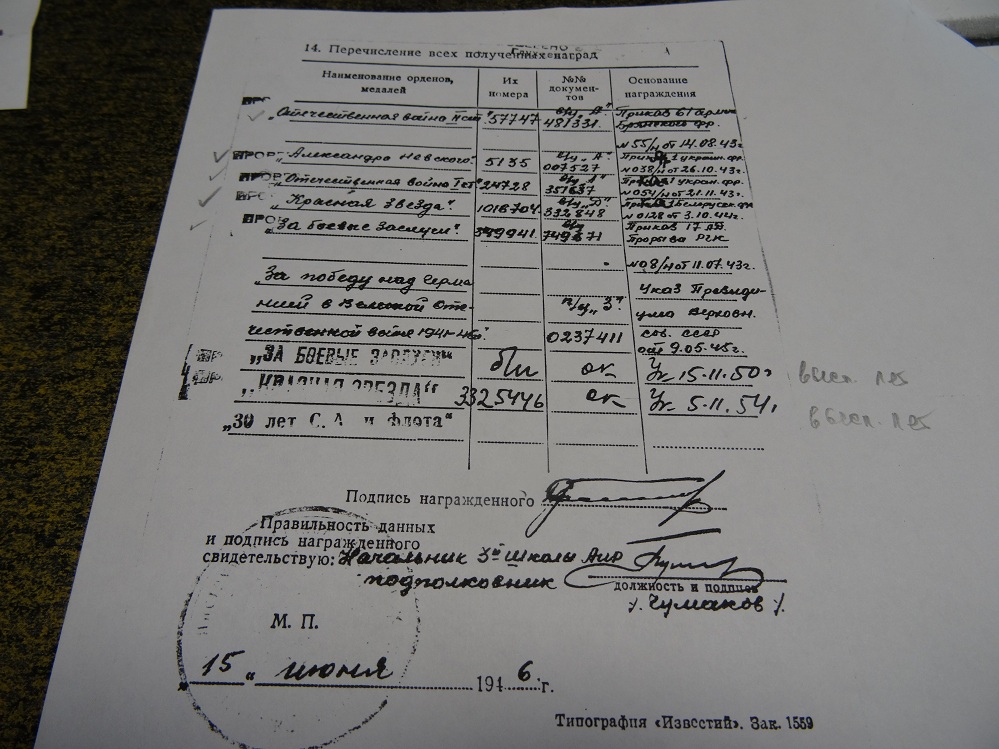 14. Перечисление всех полученных наград
Наименование орденов, медалей Их номера №№ документов Основание награждения
„Отечественная война II ст." 57747 в/ц „А" 481331. Приказ 61 армии Брянского фр.
№55/н от 14.08.43г.
„Александра Невского". 5135 в/ц „А" 007527 Приказ 1 украин. фр. №038/н от 26.10.43г.
„Отечественная война I ст" 24728 351637 Приказ 1 украин. фр. №054/н от 21.11.43г
„Красная Звезда". 1016704. в/ц „Д" 332848 №0128 от 3.10.44г.
„За боевые заслуги". 749671 Приказ 17 АД. Прорыва РГК
№08/н от 11.07.43г.
За победу над Герма
нией в Великой Оте-
чественной войне 1941-45г." 0237411
Указ Президи-
ума Верховн.
Сов. СССР
от 9.05.45г.
„ЗА БОЕВЫЕ ЗАСЛУГИ" б/н ок Ук 15.11.50г
„КРАСНАЯ ЗВЕЗДА" 3325446 ок Ук 5.11.54г
„30 лет С. А. и флота"
Подпись награжденного
Правильность данных
и подпись награжденного
свидетельствую: Начальник 3й школы
подполковник
должность и подпись
/. Чумаков /.
М. П.
„15" июня 1946 г.
Типография «Известий». Зак. 1559